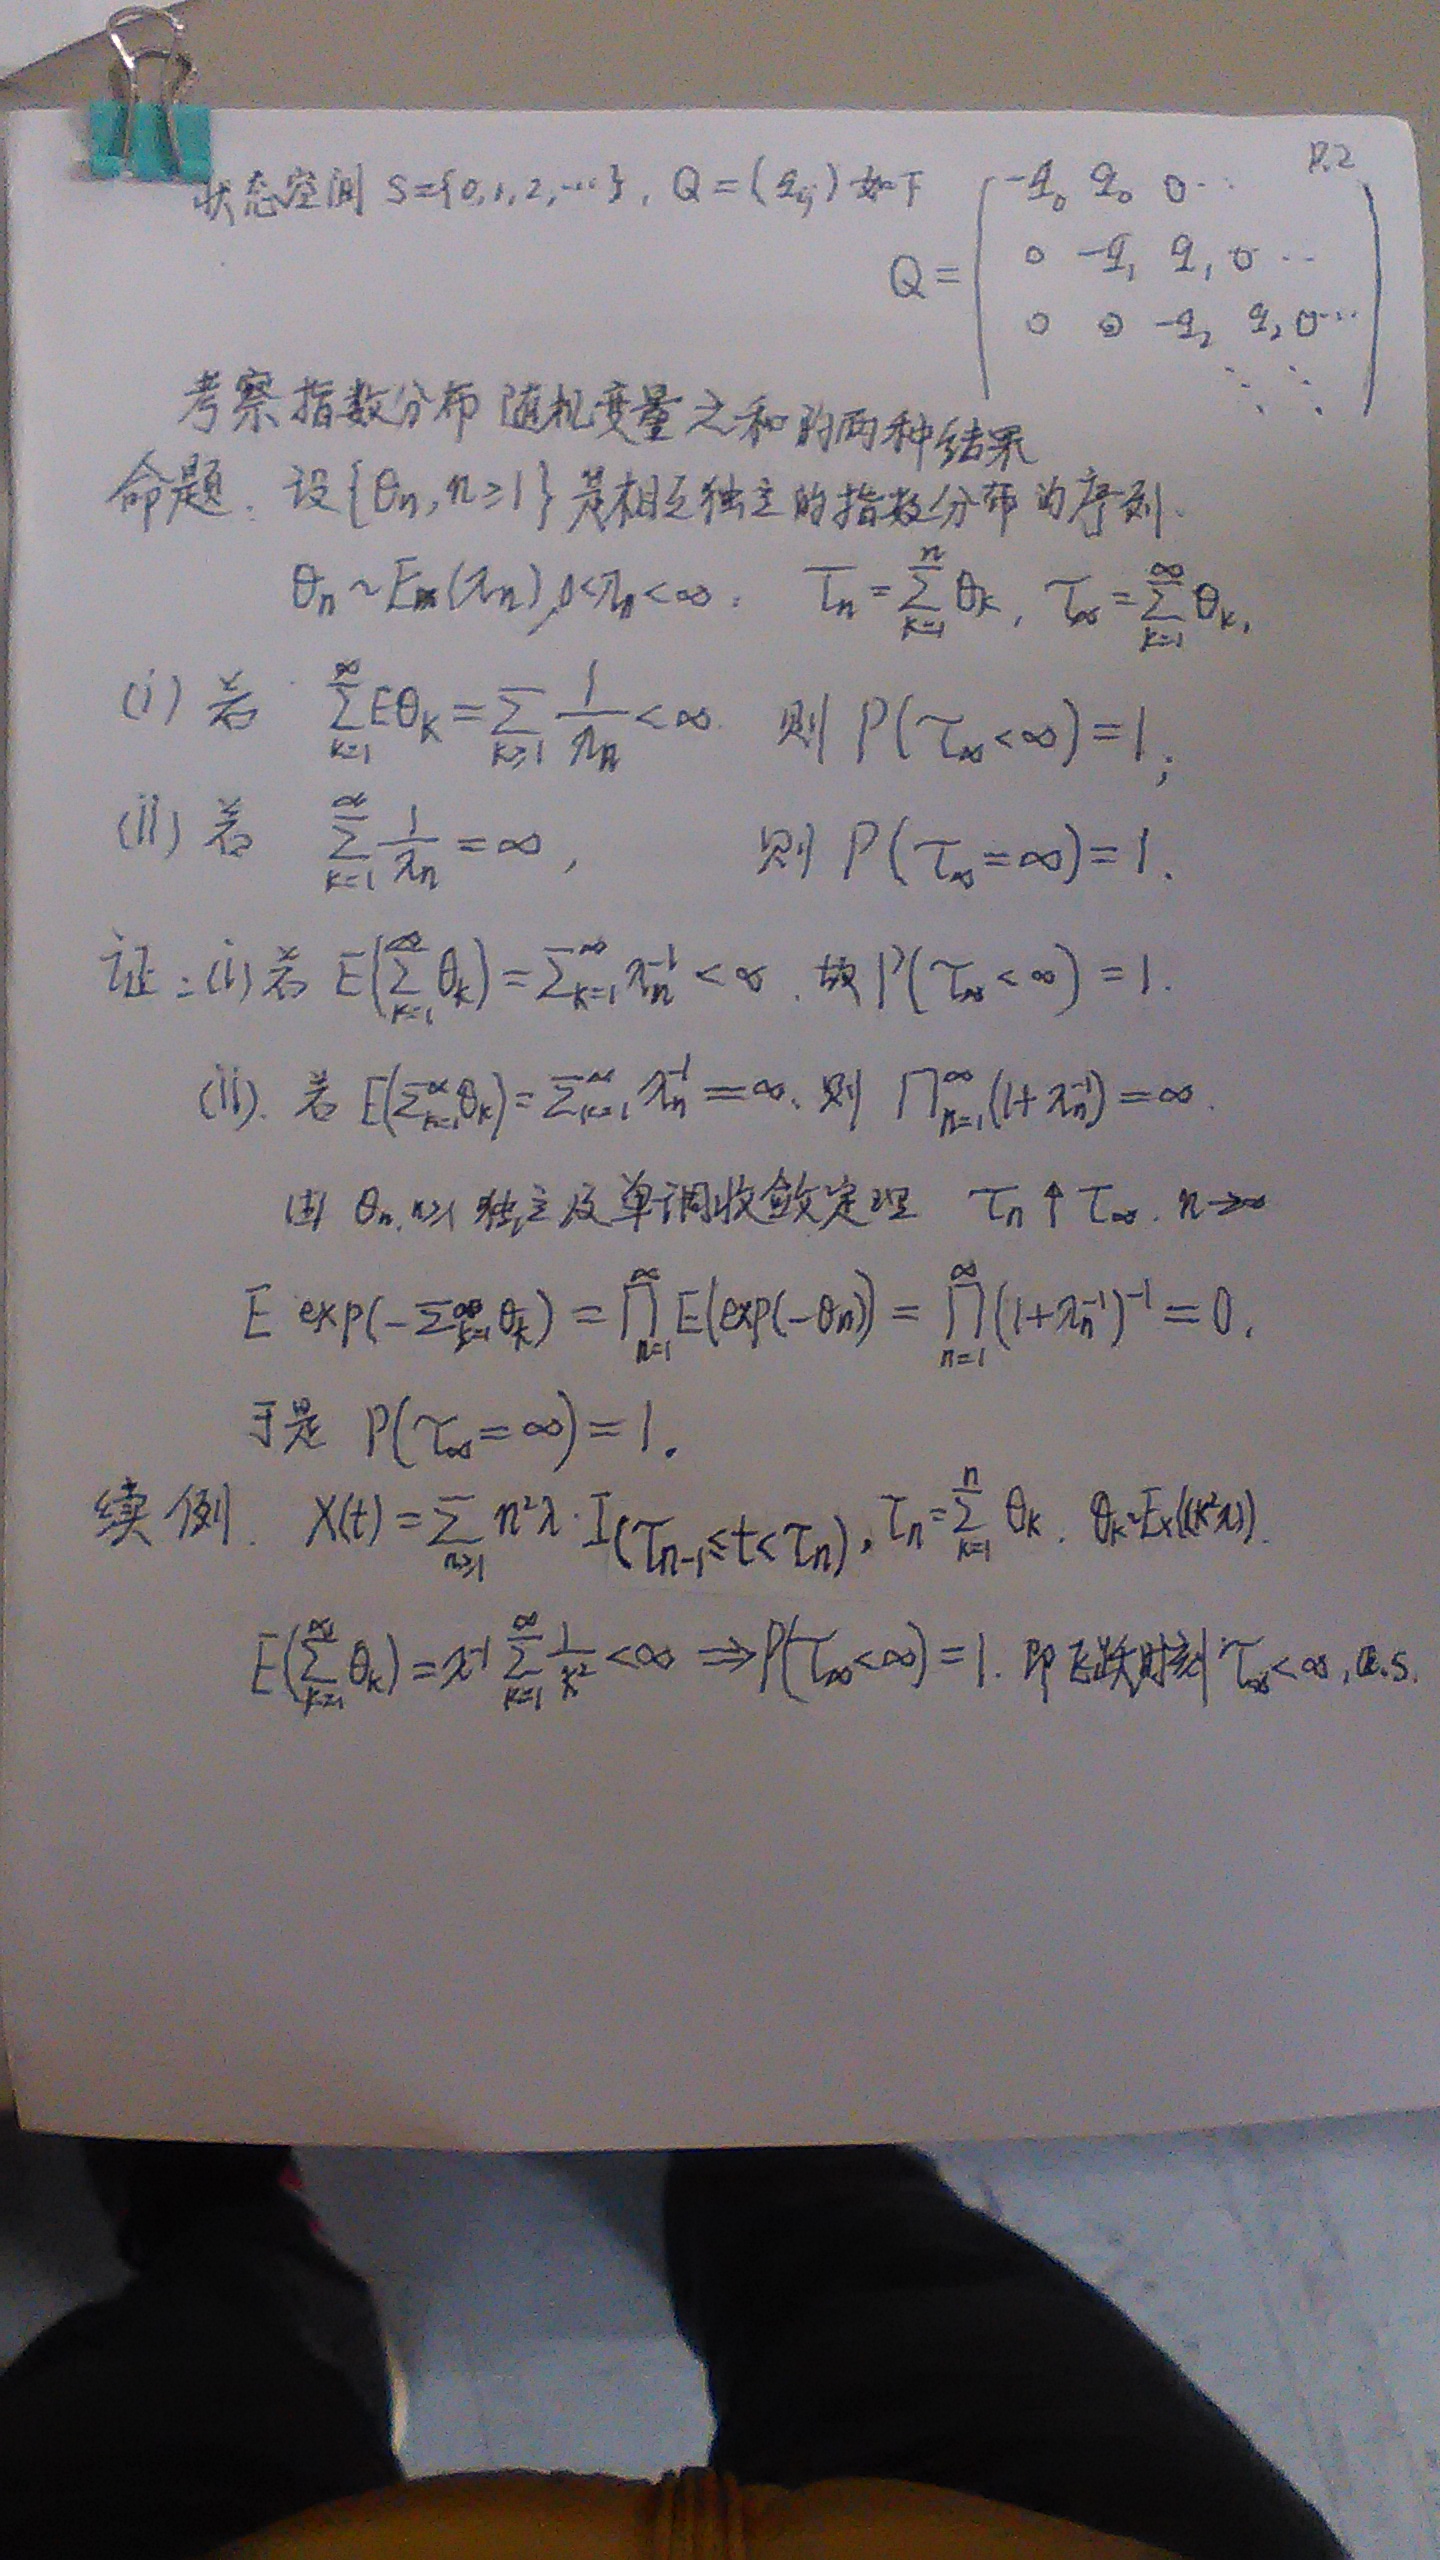 P.2
状态空间 S={0,1,2,…}, Q=(q_ij) 如下
Q = ( -q_0 q_0 0 …
0 -q_1 q_1 0 …
0 0 -q_2 q_2 0 …
⋱ ⋱ )
考察指数分布随机变量之和的两种结果
命题. 设{θ_n, n≥1}是相互独立的指数分布的序列.
θ_n ~ Ex(λ_n), 0<λ_n<∞. τ_n = ∑_{k=1}^{n} θ_k, τ_∞ = ∑_{k=1}^{∞} θ_k,
(i) 若 ∑_{k=1}^{∞} Eθ_k = ∑_{k≥1} 1/λ_n < ∞. 则 P(τ_∞<∞)=1;
(ii) 若 ∑_{k=1}^{∞} 1/λ_n = ∞, 则 P(τ_∞=∞)=1.
证: (i) 若 E(∑_{k=1}^{∞} θ_k) = ∑_{k=1}^{∞} λ_n^{-1} < ∞. 故 P(τ_∞<∞) = 1.
(ii). 若 E(∑_{k=1}^{∞} θ_k) = ∑_{k=1}^{∞} λ_n^{-1} = ∞. 则 ∏_{n=1}^{∞} (1+λ_n^{-1}) = ∞.
由 θ_n, n≥1 独立及单调收敛定理 τ_n ↑ τ_∞. n→∞
E exp(-∑_{k=1}^{∞} θ_k) = ∏_{n=1}^{∞} E(exp(-θ_n)) = ∏_{n=1}^{∞} (1+λ_n^{-1})^{-1} = 0.
于是 P(τ_∞=∞)=1.
续例. X(t) = ∑_{n≥1} n²λ · I_(τ_{n-1}≤t<τ_n), τ_n = ∑_{k=1}^{n} θ_k. θ_k ~ Ex((k²λ)).
E(∑_{k=1}^{∞} θ_k) = λ^{-1} ∑_{k=1}^{∞} 1/k² < ∞ ⇒ P(τ_∞<∞)=1. 即飞跃时刻 τ_∞<∞, a.s.